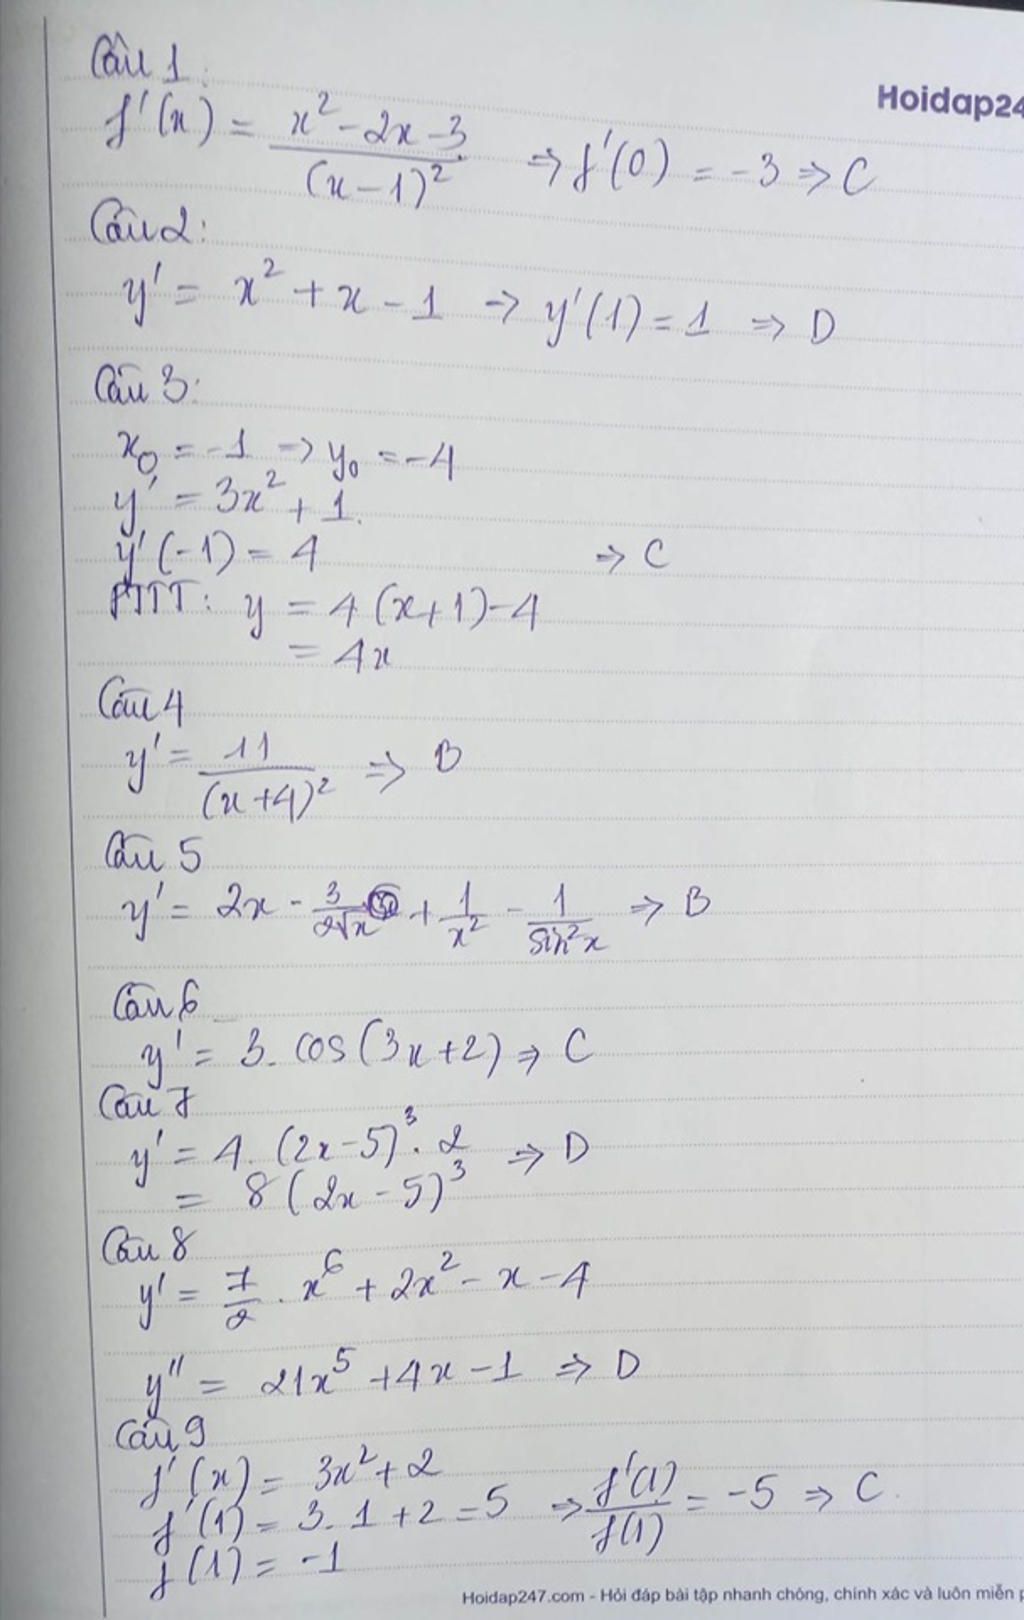 Câu 1:
Hoidap24
f'(x) = (x² - 2x - 3)/(x - 1)² => f'(0) = -3 => C
Câu 2:
y' = x² + x - 1 -> y'(1) = 1 => D
Câu 3:
x₀ = -1 -> y₀ = -4
y' = 3x² + 1.
y'(-1) = 4 => C
PTTT: y = 4(x+1)-4
= 4x
Câu 4
y' = 11/(x+4)² => B
Câu 5
y' = 2x - 3/(2√x) + 1/x² - 1/sin²x => B
Câu 6
y' = 3. cos(3x+2) => C
Câu 7
y' = 4. (2x-5)³. 2 => D
= 8(2x-5)³
Câu 8
y' = 7/2 . x⁶ + 2x² - x - 4
y'' = 21x⁵ + 4x - 1 => D
Câu 9
f'(x) = 3x² + 2
f'(1) = 3. 1 + 2 = 5 => f'(1)/f(1) = -5 => C.
f(1) = -1
Hoidap247.com - Hỏi đáp bài tập nhanh chóng, chính xác và luôn miễn p